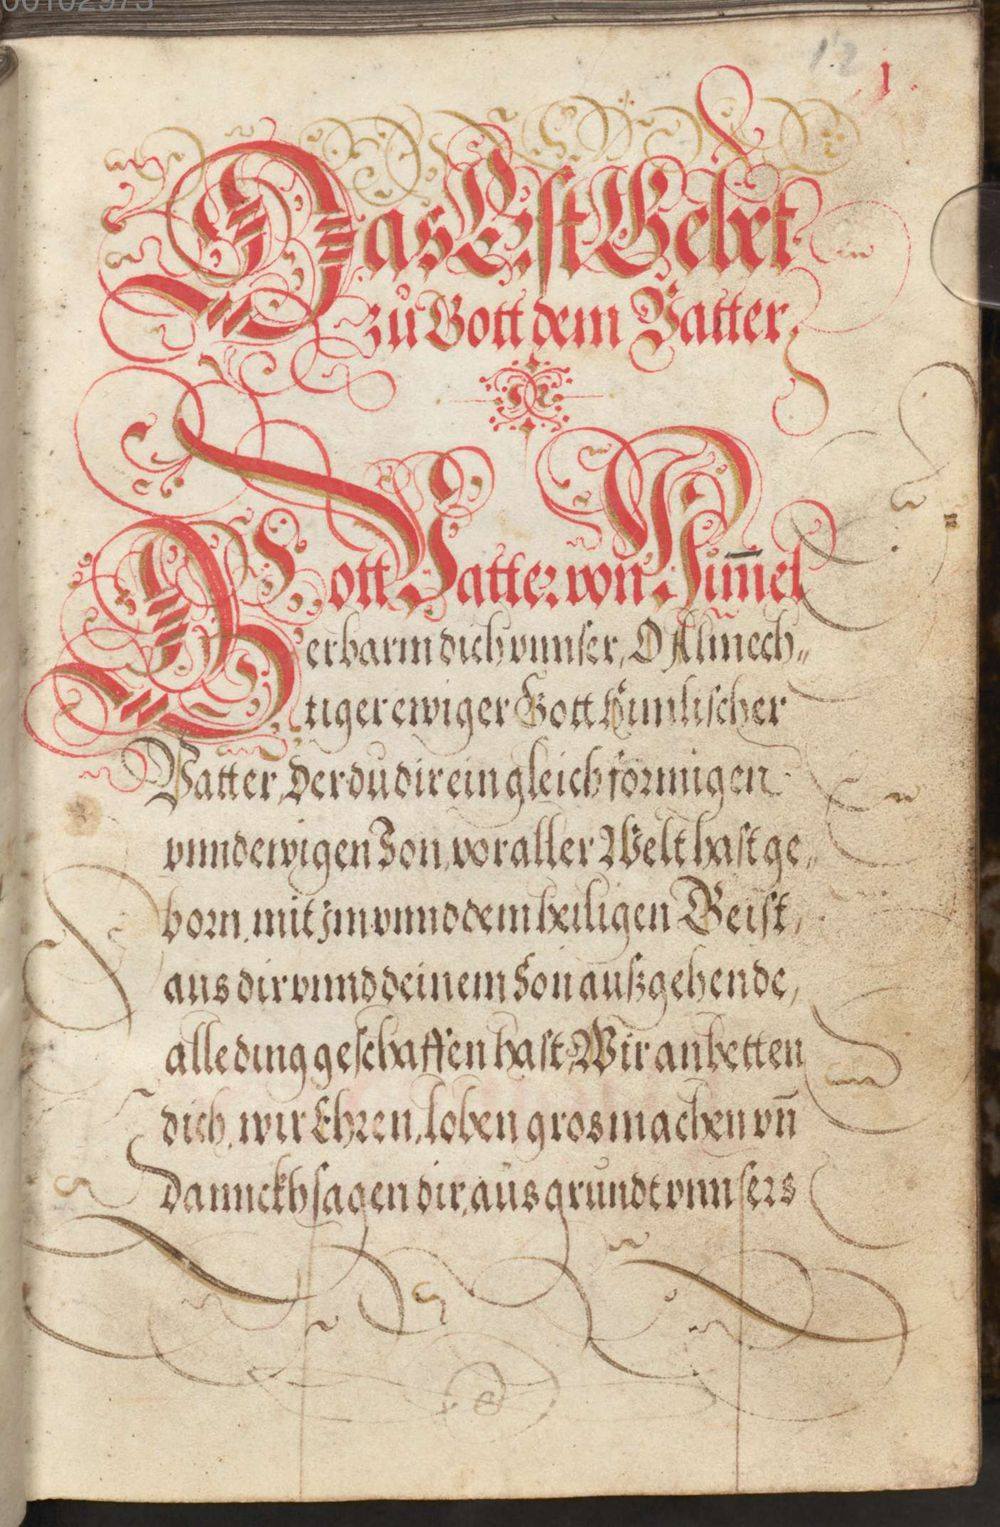 00102973
12
1.
Das Erst Gebet
zu Gott dem Vatter.
Gott Vatter von Him̅el
erbarm dich vnnser, O Almech„
tiger ewiger Gott Himlischer
Vatter, Der du dir ein gleichförmigen
vnnd ewigen Son, vor aller Welt hast ge„
born, mit jm vnnd dem heiligen Geist,
aus dir vnnd deinem Son außgehende,
alle ding geschaffen hast, Wir anbetten
dich, wir Ehren, loben gros machen vn̅
dannckhsagen dir, aus grundt vnnsers